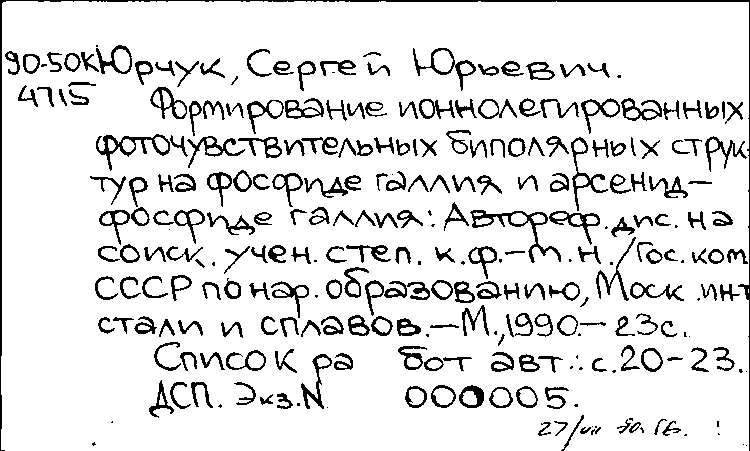 90-50К Юрчук, Сергей Юрьевич.
4715 Формирование ионнолегированных
фоточувствительных биполярных струк-
тур на фосфиде галлия и арсенид-
фосфиде галлия: Автореф. дис. на
соиск. учен. степ. к.ф.-м.н./Гос. ком.
СССР по нар. образованию, Моск. ин-т
стали и сплавов.—М., 1990.— 23с.
Список ра бот авт.: с.20-23.
ДСП. Экз.N 000005.
27/VII 90.